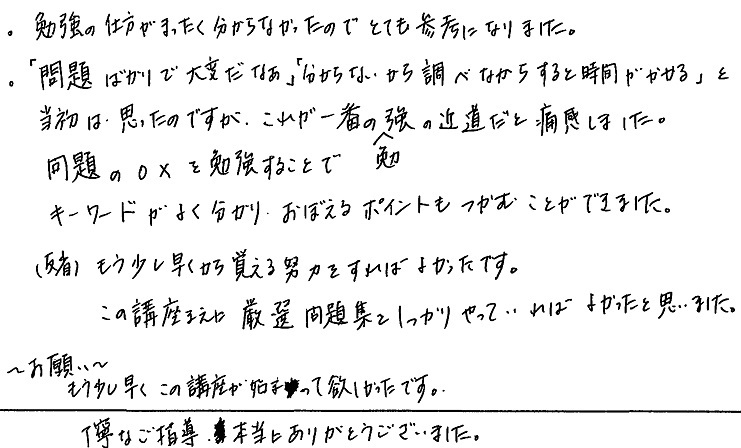 ・勉強の仕方がまったく分からなかったのでとても参考になりました。
・「問題ばかりで大変だなぁ」「分からないから調べながらすると時間がかかる」と
当初は思ったのですが、これが一番の勉強の近道だと痛感しました。
問題の○×を勉強することで
キーワードがよく分かり、おぼえるポイントもつかむことができました。
(反省) もう少し早くから覚える努力をすればよかったです。
この講座まえに厳選問題集をしっかりやっていればよかったと思いました。
〜お願い〜
もう少し早くこの講座が始まって欲しかったです。
丁寧なご指導、本当にありがとうございました。